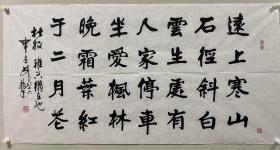 遠上寒山
石徑斜白
雲生處有
人家停車
坐愛楓林
晚霜葉紅
于二月花
杜牧